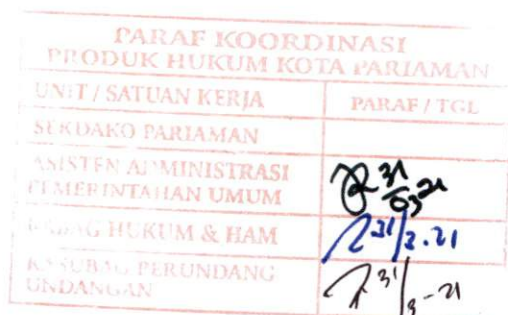 PARAF KOORDINASI
PRODUK HUKUM KOTA PARIAMAN
UNIT / SATUAN KERJA PARAF / TGL
SEKDAKO PARIAMAN
ASISTEN ADMINISTRASI
PEMERINTAHAN UMUM
31/03 21
KABAG HUKUM & HAM
31/3.21
KASUBAG PERUNDANG
UNDANGAN
31/3-21